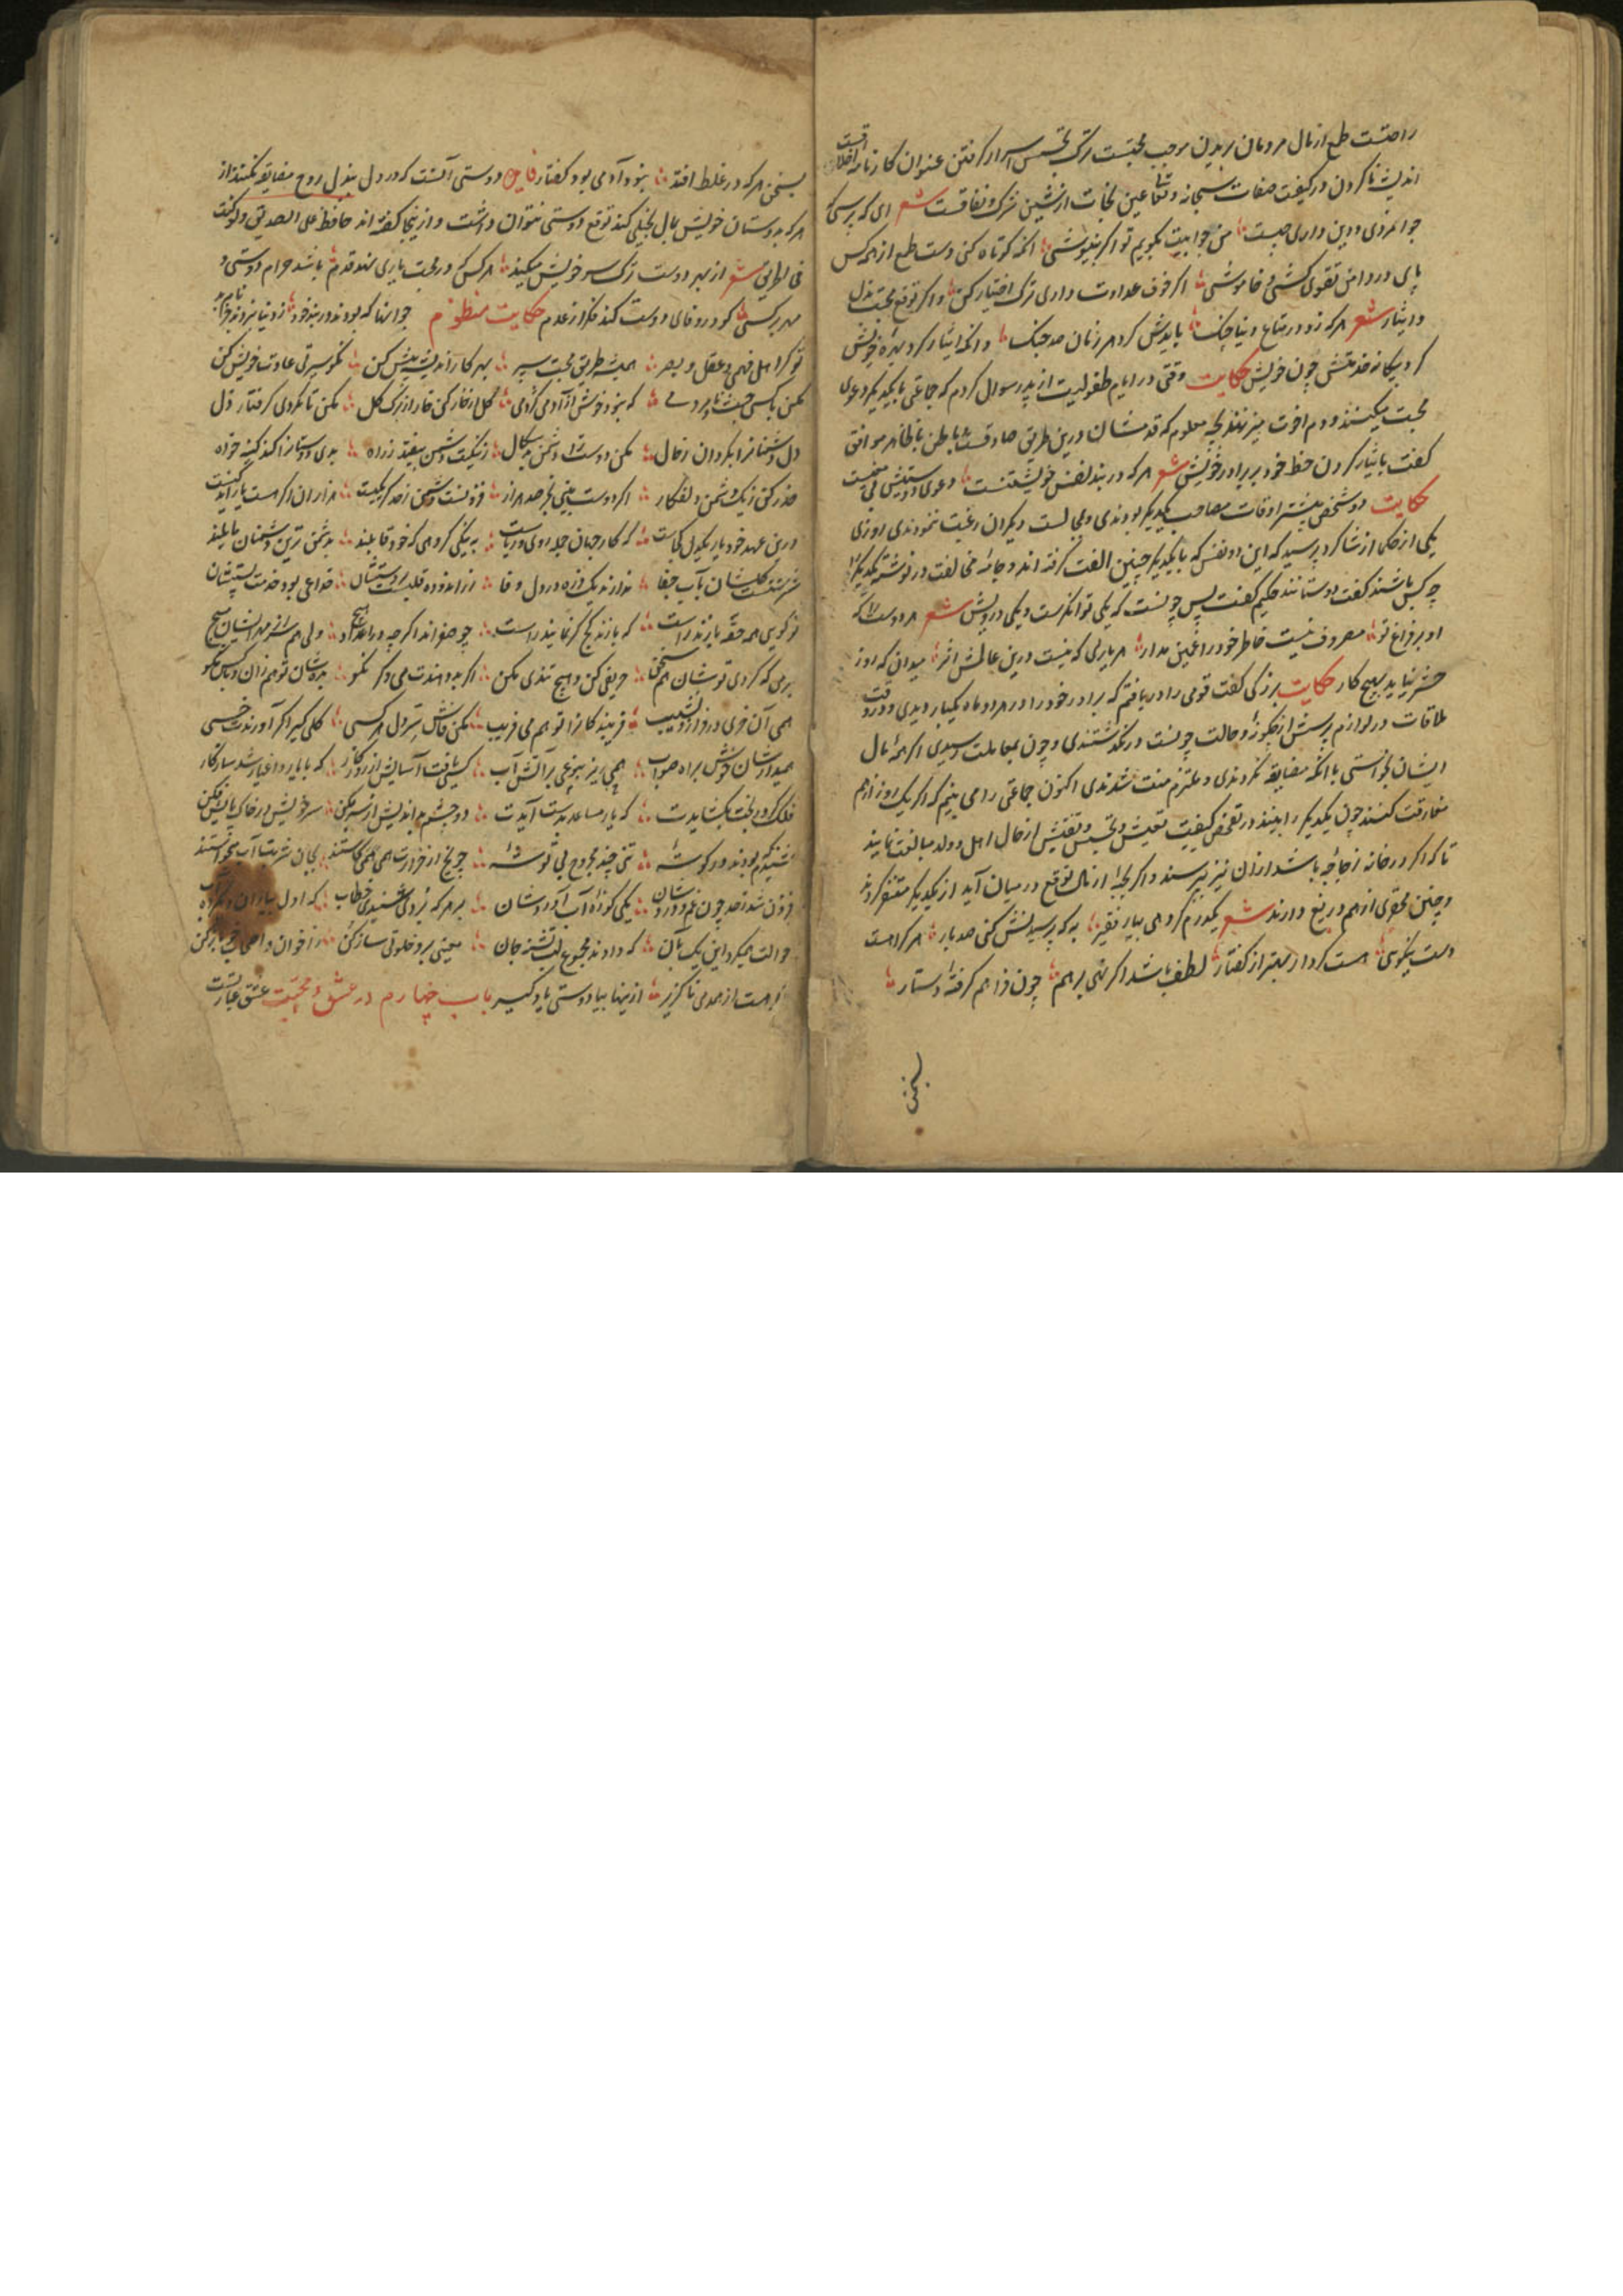 راحتست طمع از مال مردمان بریدن موجب محبتست ترک تجسس اسرار گرفتن عنوان کارنامه اخلاقست
اندیشه ناکردن در کیفیت صفات سبحانه وتعالی عین نجات از شین شرک و نفاقست شعر ای که پرسی
جوانمردی و دین داری چیست من جوابت بگویم تو اگر بنیوشی آنکه کوتاه کنی دست طمع از همه کس
پای در دامن تقوی کشی و خاموشی اگر خوف عداوت داری ترک اختیار کن و اگر توقع محبت بذل
و ایثار شعر هر که زد در متاع دنیا چنگ بایدش کرد هر زمان صد جنگ وانکه ایثار کرد بهره خویش
کرد بیگانه خدمتش چون خویش حکایت وقتی در ایام طفولیت از پدر سوال کردم که جماعتی با یکدیگر دعوی
محبت میکنند و دم اخوت میزنند بچه معلوم که قدمشان درین طریق صادقست و باطن با ظاهر موافق
گفت بایثار کردن حظ خود بر برادر خویش شعر هر که در بند نفس خویشتنست دعوی دوستیش بی معنیست
حکایت دو شخص بیشتر اوقات مصاحب یکدیگر بودندی و بمجالست دیگران رغبت ننمودندی روزی
یکی از حکما از شاگرد پرسید که این دو نفس که با یکدیگر چنین الفت گرفته اند و جامه مخالفت در نوشته یکدیگر را
چه کس باشند گفت دوستانند حکیم گفت پس چونست که یکی توانگرست و یکی درویش شعر هر دوست را که
او بر فراغ تو مصروف نیست خاطر خود را غمین مدار هر یاری که نیست درین عالمش اثر میدان که روز
حشر نیاید بهیچ کار حکایت بزرگی گفت قومی را دریافتم که برادر خود را در هر دو ماه یکبار دیدی و در وقت
ملاقات در لوازم پرسش از چگونه و حالت چونست در نگذشتندی و چون بمعاملت رسیدی اگر همه مال
ایشان بخواستی با آنکه مضایقه نکردندی و ملتزم منت شدندی اکنون جماعتی را می بینم که اگر یک روز از هم
مفارقت کنند چون یکدیگر را ببینند در تفحص کیفیت تعیش و تجسس و تفتیش از حال اهل و ولد مبالغت نمایند
تا که اگر در خانه زجاجه باشد از آن نیز بپرسند و اگر بحبه از مال توقع در میان آید از یکدیگر متنفر گردند
و چنین محقری از هم دریغ دارند شعر یکدرم گر دهی بیار فقیر به که پرسیدنش کنی صد بار هر کرا هست
دست نیکوی هست کردار بهتر از گفتار لطف باشد اگر نهی بر هم چون فراهم گرفته دستار
بسخن
بسخن هر که در غلط افتد نبود آدمی بود گفتار دوستی آنست که در دل بذل روح مضایقه نکنند از
هر که بدوستان خویش بمال بخیلی کند توقع دوستی نتوان داشت و از ینجا گفته اند حافظ علی الصدیق ولو کنت
فی الحریق شعر از بهر دوست ترک سر خویش میکند هر کس که در محبت یاری نهد قدم باشد حرام دوستی و
مهر بر کسی کو در وفای دوست کند فکر از عدم حکایت منظوم جوانها که بودند در بند خود ز دنیا نبردند
تو گر اهل فهمی و عقل و بصر همیشه طریق محبت سپر بهر کار اندیشه پیش کن نکو سیرتی عادت خویش کن
مکن با کسی جهد تا مردمی که نبود خوش از آدمی کژدمی گل از خار کن خار از برگ گل مکن تا نگردی گرفتار ذل
دل دشمنان را بگردان ز حال مکن دوست را دشمن بدسگال ز نیکیت دشمن بیفتد ز راه بدی دوستان را کند کینه خواه
حذر کن ز یک دشمن دلفگار اگر دوست بینی بجز صد هزار فزونست دشمن ز صد گر یکیست هزاران اگر هست یار اندکیست
درین عهد خود یار یکدل کجاست که کار جهان جمله روی و ریاست به نیکی گروهی که خود قایلند بدشمن ترین دشمنان مایلند
سرشتست گلشان بآب جفا ندارند یک ذره در دل وفا زر اندوده قلبست دوستیشان خداعی بود خدمت پستیشان
تو گویی همه حقه بازند راست که بازند کج گر نمایند راست چو صفراند اگر چه در اعداد هیچ ولی هم سر از مهر ایشان مپیچ
برمی که کردی تو شان هم سخن حریفی کن و هیچ تندی مکن اگر بد دهندت می و گر نکو بده شان تو هم زان و بکس مگو
همی آن خری در فراز و نشیب فریبندگانرا تو هم می فریب مکن فاش سر دل هر کسی گلی گیر اگر آورندت خسی
همیدارشان خوش براه صواب همی ریز بیزعی بر آتش آب کسی یافت آسایش از روزگار که با یار و اغیار شد سازگار
فلک گر در بخت بگشایدت که یار مساعد بدست آیدت دو چشم بد اندیش از سر بکن سر خویش در خاک پایش فکن
شنیدم که بودند در گوشه تنی چند مجروح بی توشه چو یخ از حرارت همی کاستند بجان شربت آب میخواستند
فزون شد ز حد چون غم و دردشان یکی کوزه آب آوردشان بر هر که بردی شنیدی خطاب که اول بیاران دیگر ده آب
حوالت همیکرد این یک بآن که دادند مجموع لب تشنه جان معینی برو خلوتی ساز کن
گر هست از همدمی ناگزیر از ینها بیا دوستی یاد گیر باب چهارم در عشق و محبت عشق عبارتست